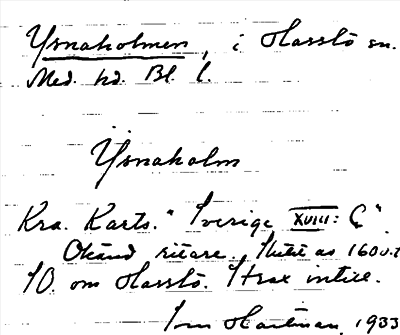 Ysnaholmen, i Hasslö sn.
Med. hd. Bl. l.
Ysnaholm
Kra. Karts. "Sverige XVIII: G"
Okänd ritare. Slutet av 1600-t
SO. om Hasslö. Strax intill.
Hartman. 1933